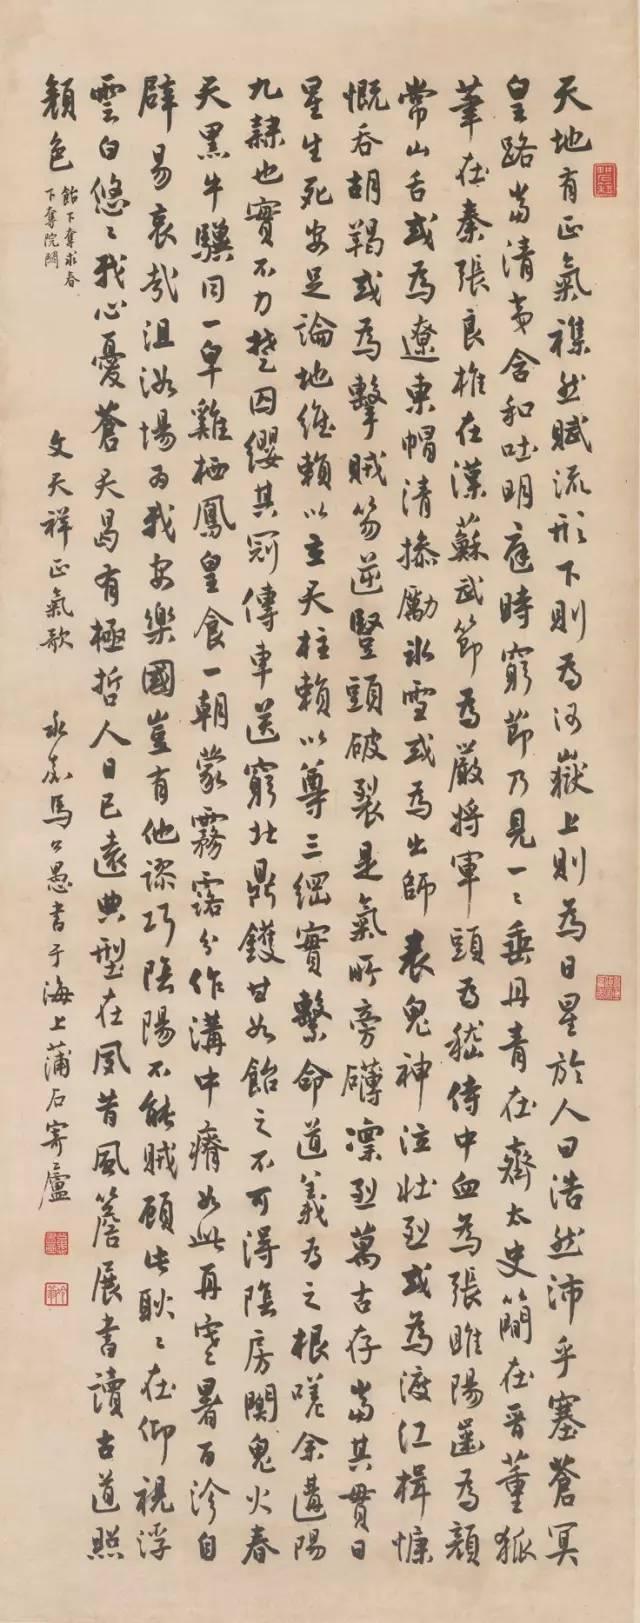 天地有正氣雜然賦流形下則為河嶽上則為日星於人曰浩然沛乎塞蒼冥
皇路當清夷含和吐明庭時窮節乃見一〻垂丹青在齊太史簡在晉董狐
筆在秦張良椎在漢蘇武節為嚴將軍頭為嵇侍中血為張睢陽齒為顏
常山舌或為遼東帽清操勵冰雪或為出師表鬼神泣壯烈或為渡江楫慷
慨吞胡羯或為擊賊笏逆豎頭破裂是氣所旁礴凜烈萬古存當其貫日
星生死安足論地維賴以立天柱賴以尊三綱實繫命道義為之根嗟余遘陽
九隸也實不力楚囚纓其冠傳車送窮北鼎鑊甘如飴之不可得陰房闃鬼火春
天黑牛驥同一皁雞栖鳳皇食一朝蒙霧露分作溝中瘠如此再寒暑百沴自
辟易哀哉沮洳場為我安樂國豈有他謬巧陰陽不能賊顧此耿〻在仰視浮
雲白悠〻我心憂蒼天曷有極哲人日已遠典型在夙昔風簷展書讀古道照
顏色
飴下奪求春
下奪院闃
文天祥正氣歌
永嘉馬公愚書于海上蒲石寄廬